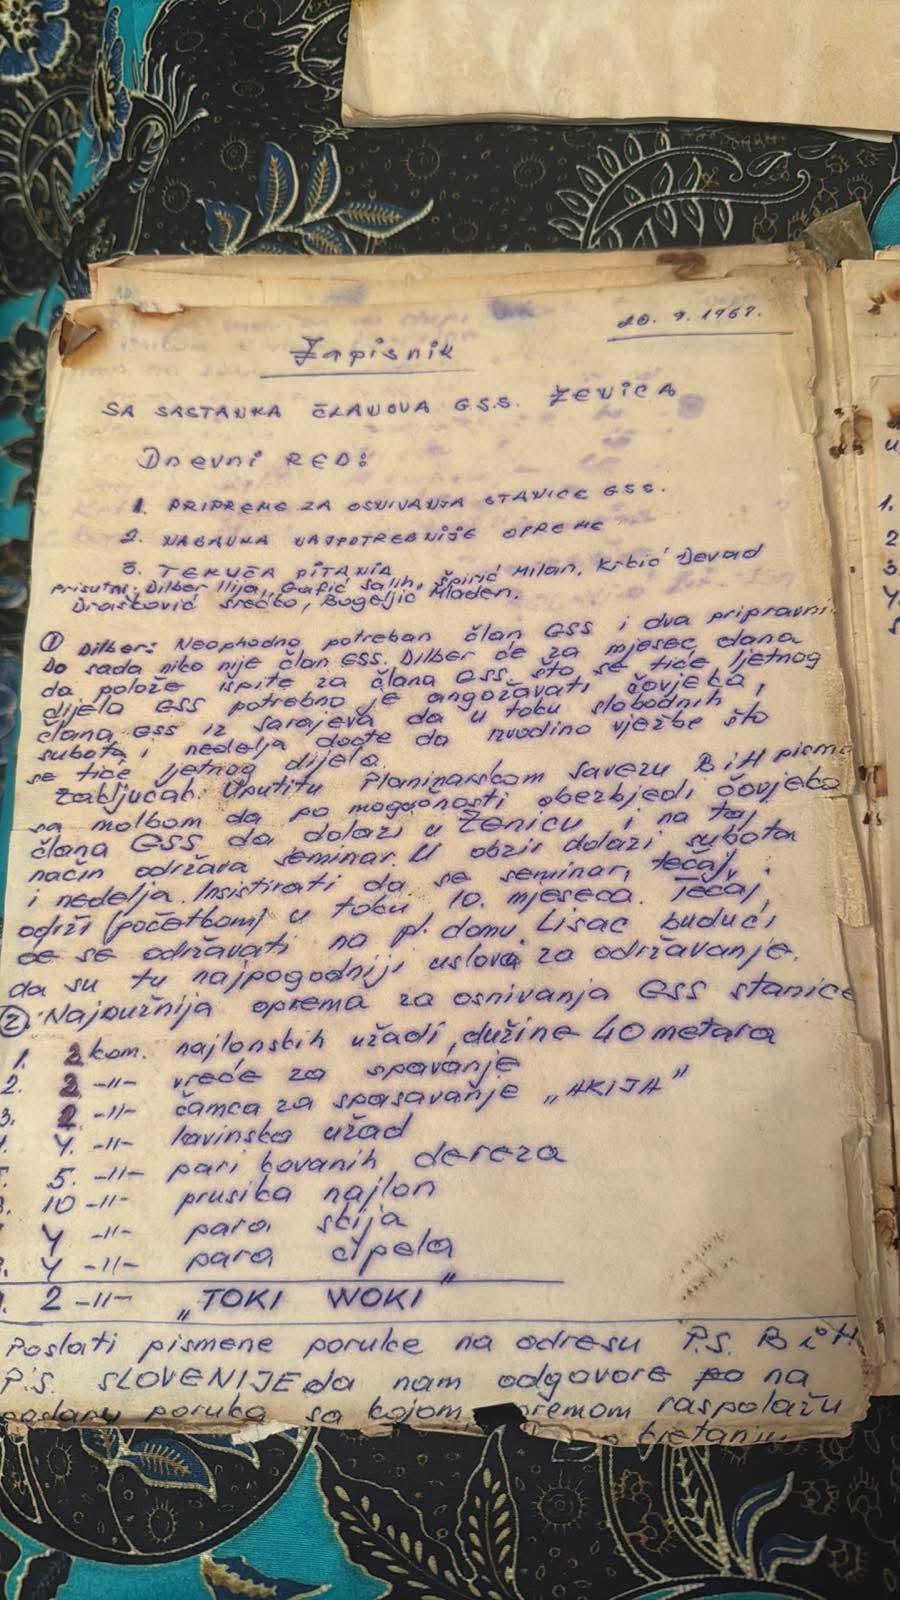 20. 9. 1968.
Zapisnik
SA SASTANKA ČLANOVA G.S.S. ZENICA
Dnevni RED:
1. PRIPREME ZA OSNIVANJA STANICE GSS.
2. NABAVKA NAJPOTREBNIJE OPREME
3. TEKUĆA PITANJA
Prisutni: Dilber Ilija, Gafić Salih, Špirić Milan, Krbić Devad
Drašković Srećko, Bugeljić Mladen.
① Dilber: Neophodno potreban član GSS i dva pripravni
Do sada niko nije član GSS. Dilber će za mjesec dana
da polože ispite za člana GSS. što se tiče ljetnog
dijela GSS potrebno je angožavati čovjeka,
člana GSS iz Sarajeva da u toku slobodnih
subota i nedelja dođe da izvodimo vježbe što
se tiče ljetnog dijela.
Zaključak: Uputiti Planinarskom Savezu BiH pismo
sa molbom da po mogućnosti obezbjedi čovjeka
člana GSS da dolazi u Zenicu i na taj
način održava seminar. U obzir dolazi subota
i nedelja. Insistirati da se seminar, tečaj,
održi (početkom) u toku 10. mjeseca. Tečaj,
će se održavati na pl. domu. Lisac budući
da su tu najpogodniji uslovi za održavanje.
②. Najnužnija oprema za osnivanja GSS stanice
1. 2 kom. najlonskih užadi, dužine 40 metara
2. 2 -11- vreće za spavanje
3. 2 -11- čamca za spasavanje „AKIJA"
4. -11- lavinska užad
5. -11- pari kovanih dereza
10 -11- prusika najlon
4 -11- para skija
4 -11- para cipela
2 -11- „TOKI WOKI"
Poslati pismene poruke na odresu P.S. BiH
P.S. SLOVENIJE da nam odgovore po na
poslanu poruka sa kojom opremom raspolažu